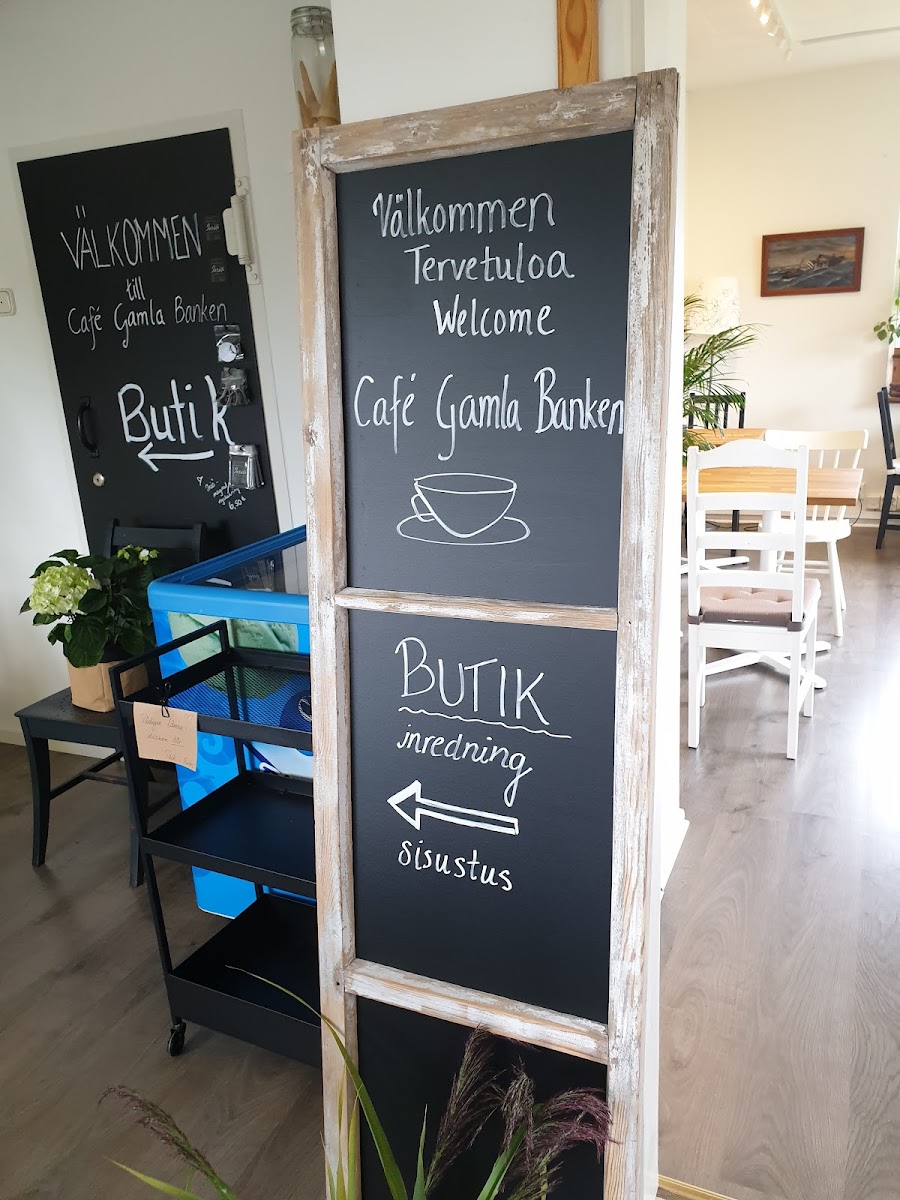 VÄLKOMMEN
till
Café Gamla Banken
Butik
6,50€
Välkommen
Tervetuloa
Welcome
Café Gamla Banken
BUTIK
inredning
sisustus